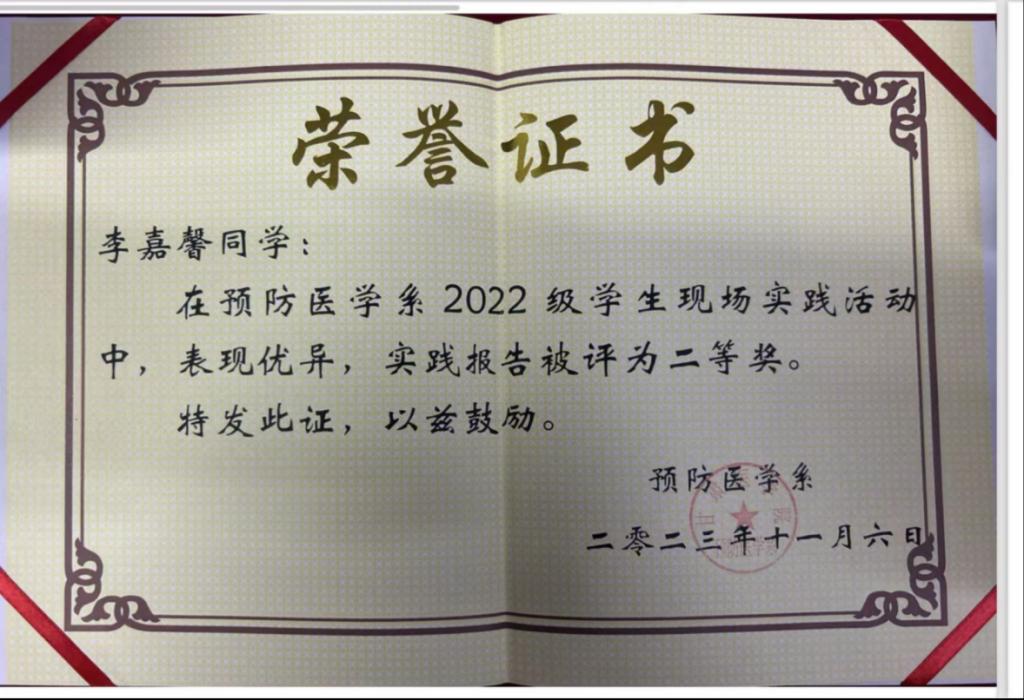 荣誉证书
李嘉馨同学：
在预防医学系2022级学生现场实践活动
中，表现优异，实践报告被评为二等奖。
特发此证，以兹鼓励。
预防医学系
二零二三年十一月六日